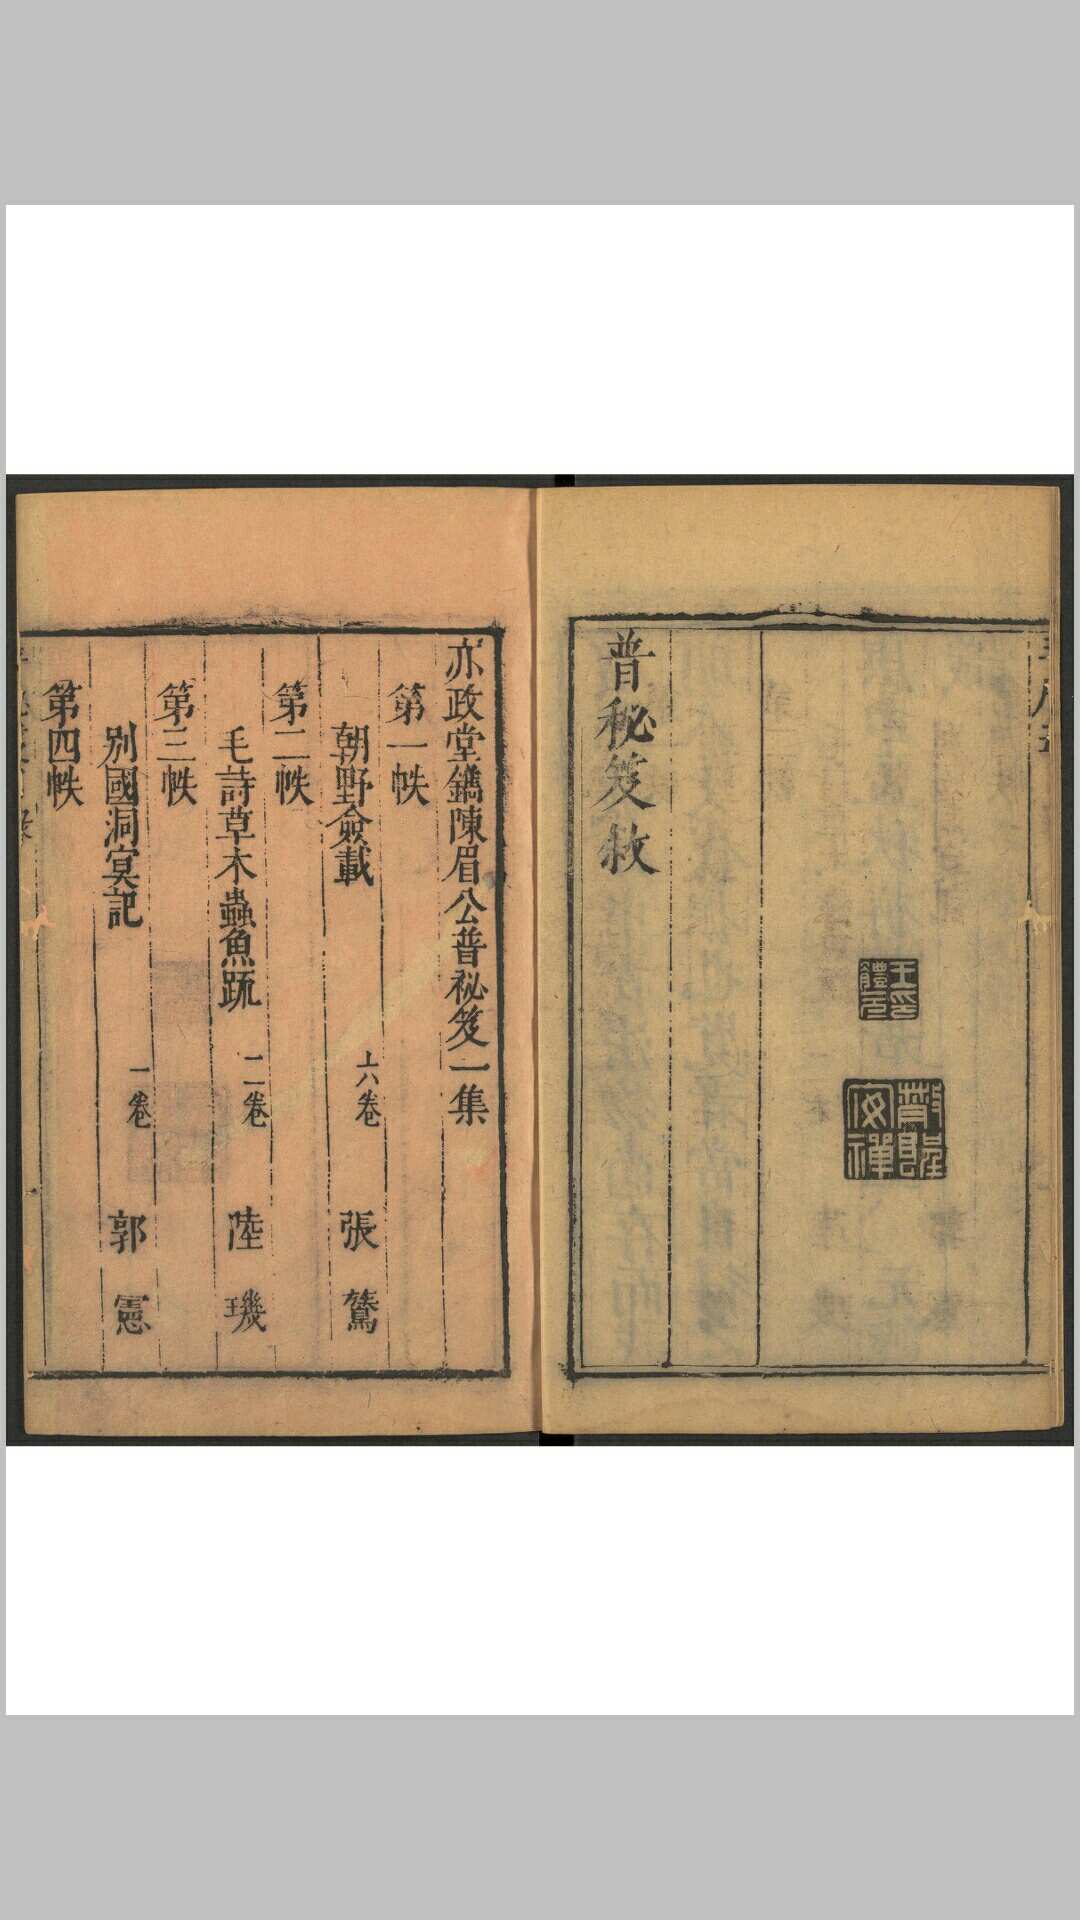 王印
體元
普秘笈敘
亦政堂鐫陳眉公普祕笈一集
第一帙
朝野僉載 六卷 張鷟
第二帙
毛詩草木蟲魚疏 二卷 陸璣
第三帙
別國洞冥記 一卷 郭憲
第四帙